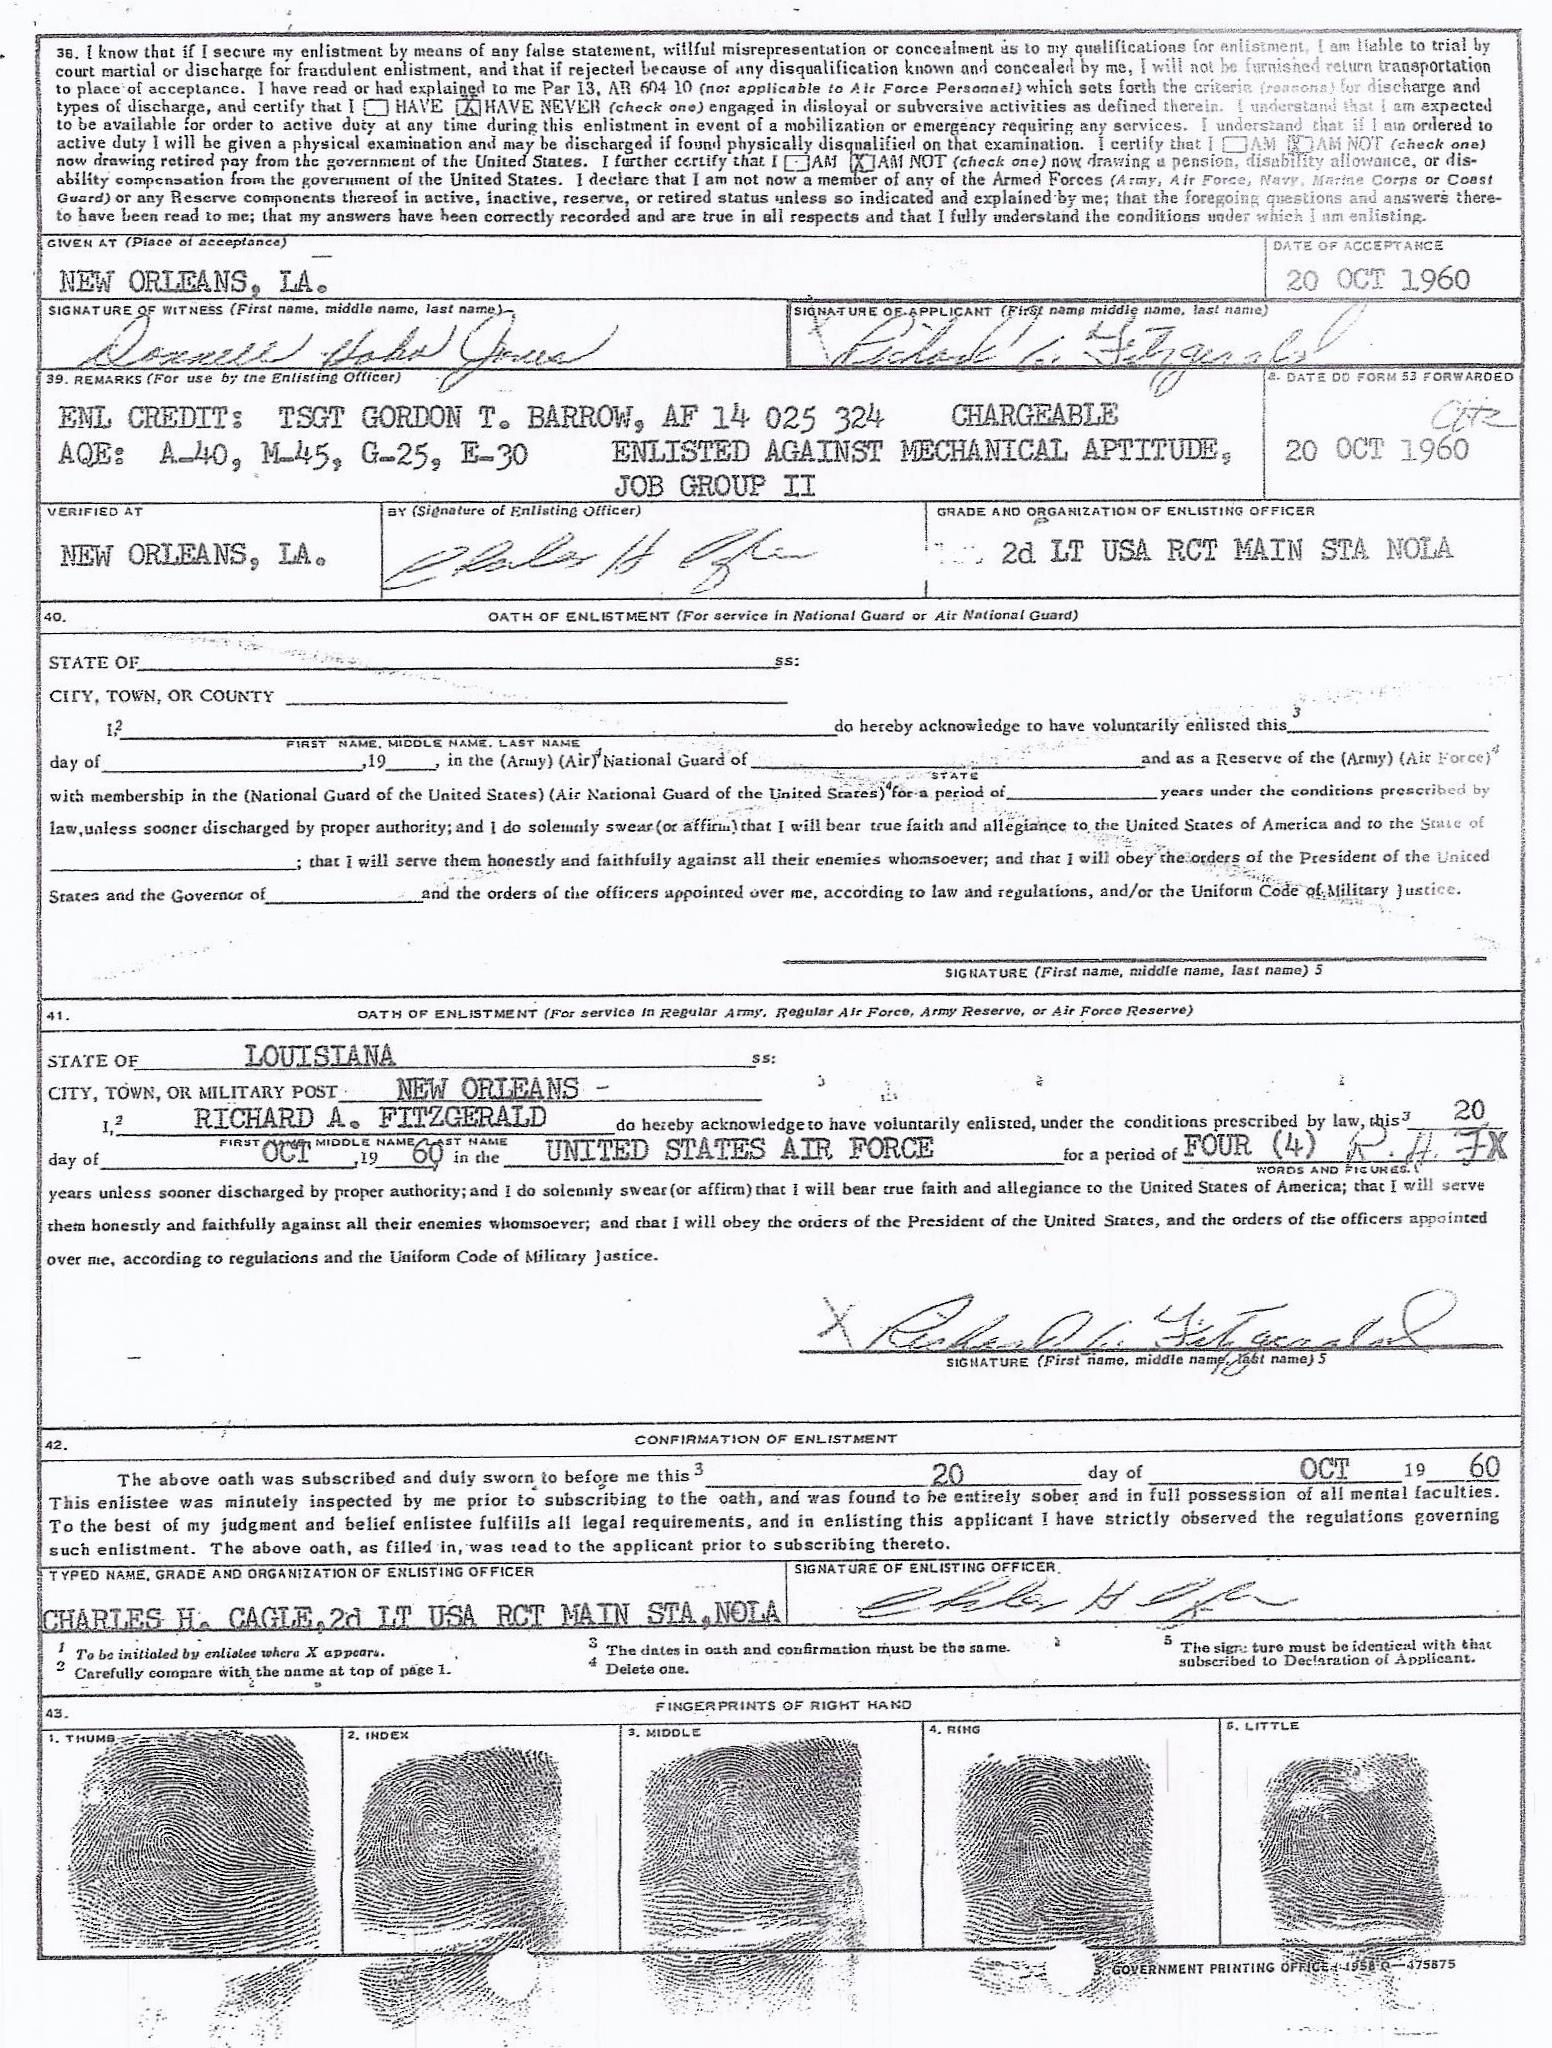 38. I know that if I secure my enlistment by means of any false statement, willful misrepresentation or concealment as to my qualifications for enlistment, I am liable to trial by
court martial or discharge for fraudulent enlistment, and that if rejected because of any disqualification known and concealed by me, I will not be furnished return transportation
to place of acceptance. I have read or had explained to me Par 13, AR 604 10 (not applicable to Air Force Personnel) which sets forth the criteria (reasons) for discharge and
types of discharge, and certify that I ☐ HAVE ☒ HAVE NEVER (check one) engaged in disloyal or subversive activities as defined therein. I understand that I am expected
to be available for order to active duty at any time during this enlistment in event of a mobilization or emergency requiring any services. I understand that if I am ordered to
active duty I will be given a physical examination and may be discharged if found physically disqualified on that examination. I certify that I ☐ AM ☒ AM NOT (check one)
now drawing retired pay from the government of the United States. I further certify that I ☐ AM ☒ AM NOT (check one) now drawing a pension, disability allowance, or dis-
ability compensation from the government of the United States. I declare that I am not now a member of any of the Armed Forces (Army, Air Force, Navy, Marine Corps or Coast
Guard) or any Reserve components thereof in active, inactive, reserve, or retired status unless so indicated and explained by me; that the foregoing questions and answers there-
to have been read to me; that my answers have been correctly recorded and are true in all respects and that I fully understand the conditions under which I am enlisting.
GIVEN AT (Place of acceptance) DATE OF ACCEPTANCE
NEW ORLEANS, LA. 20 OCT 1960
SIGNATURE OF WITNESS (First name, middle name, last name) SIGNATURE OF APPLICANT (First name middle name, last name)
Jones X Richard A. Fitzgerald
39. REMARKS (For use by the Enlisting Officer) a. DATE DD FORM 53 FORWARDED
ENL CREDIT: TSGT GORDON T. BARROW, AF 14 025 324 CHARGEABLE
AQE: A-40, M-45, G-25, E-30 ENLISTED AGAINST MECHANICAL APTITUDE, 20 OCT 1960
JOB GROUP II
VERIFIED AT BY (Signature of Enlisting Officer) GRADE AND ORGANIZATION OF ENLISTING OFFICER
NEW ORLEANS, LA. Charles H Cagle 2d LT USA RCT MAIN STA NOLA
40. OATH OF ENLISTMENT (For service in National Guard or Air National Guard)
STATE OF ss:
CITY, TOWN, OR COUNTY
I,2 do hereby acknowledge to have voluntarily enlisted this 3
FIRST NAME, MIDDLE NAME, LAST NAME
day of ,19 , in the (Army) (Air)4 National Guard of and as a Reserve of the (Army) (Air Force)4
STATE
with membership in the (National Guard of the United States) (Air National Guard of the United States)4 for a period of years under the conditions prescribed by
law, unless sooner discharged by proper authority; and I do solemnly swear (or affirm) that I will bear true faith and allegiance to the United States of America and to the State of
; that I will serve them honestly and faithfully against all their enemies whomsoever; and that I will obey the orders of the President of the United
States and the Governor of and the orders of the officers appointed over me, according to law and regulations, and/or the Uniform Code of Military Justice.
SIGNATURE (First name, middle name, last name) 5
41. OATH OF ENLISTMENT (For service in Regular Army, Regular Air Force, Army Reserve, or Air Force Reserve)
STATE OF LOUISIANA ss:
CITY, TOWN, OR MILITARY POST NEW ORLEANS -
I,2 RICHARD A. FITZGERALD do hereby acknowledge to have voluntarily enlisted, under the conditions prescribed by law, this 3 20
FIRST NAME MIDDLE NAME LAST NAME
day of OCT ,19 60 in the UNITED STATES AIR FORCE for a period of FOUR (4) X
WORDS AND FIGURES.
years unless sooner discharged by proper authority; and I do solemnly swear (or affirm) that I will bear true faith and allegiance to the United States of America; that I will serve
them honestly and faithfully against all their enemies whomsoever; and that I will obey the orders of the President of the United States, and the orders of the officers appointed
over me, according to regulations and the Uniform Code of Military Justice.
X Richard A. Fitzgerald
SIGNATURE (First name, middle name, last name) 5
42. CONFIRMATION OF ENLISTMENT
The above oath was subscribed and duly sworn to before me this 3 20 day of OCT 19 60
This enlistee was minutely inspected by me prior to subscribing to the oath, and was found to be entirely sober and in full possession of all mental faculties.
To the best of my judgment and belief enlistee fulfills all legal requirements, and in enlisting this applicant I have strictly observed the regulations governing
such enlistment. The above oath, as filled in, was read to the applicant prior to subscribing thereto.
TYPED NAME, GRADE AND ORGANIZATION OF ENLISTING OFFICER SIGNATURE OF ENLISTING OFFICER
CHARLES H. CAGLE, 2d LT USA RCT MAIN STA, NOLA Charles H Cagle
1 To be initialed by enlistee where X appears. 3 The dates in oath and confirmation must be the same. 5 The signature must be identical with that
2 Carefully compare with the name at top of page 1. 4 Delete one. subscribed to Declaration of Applicant.
43. FINGERPRINTS OF RIGHT HAND
1. THUMB 2. INDEX 3. MIDDLE 4. RING 5. LITTLE
GOVERNMENT PRINTING OFFICE: 1958 O-475875